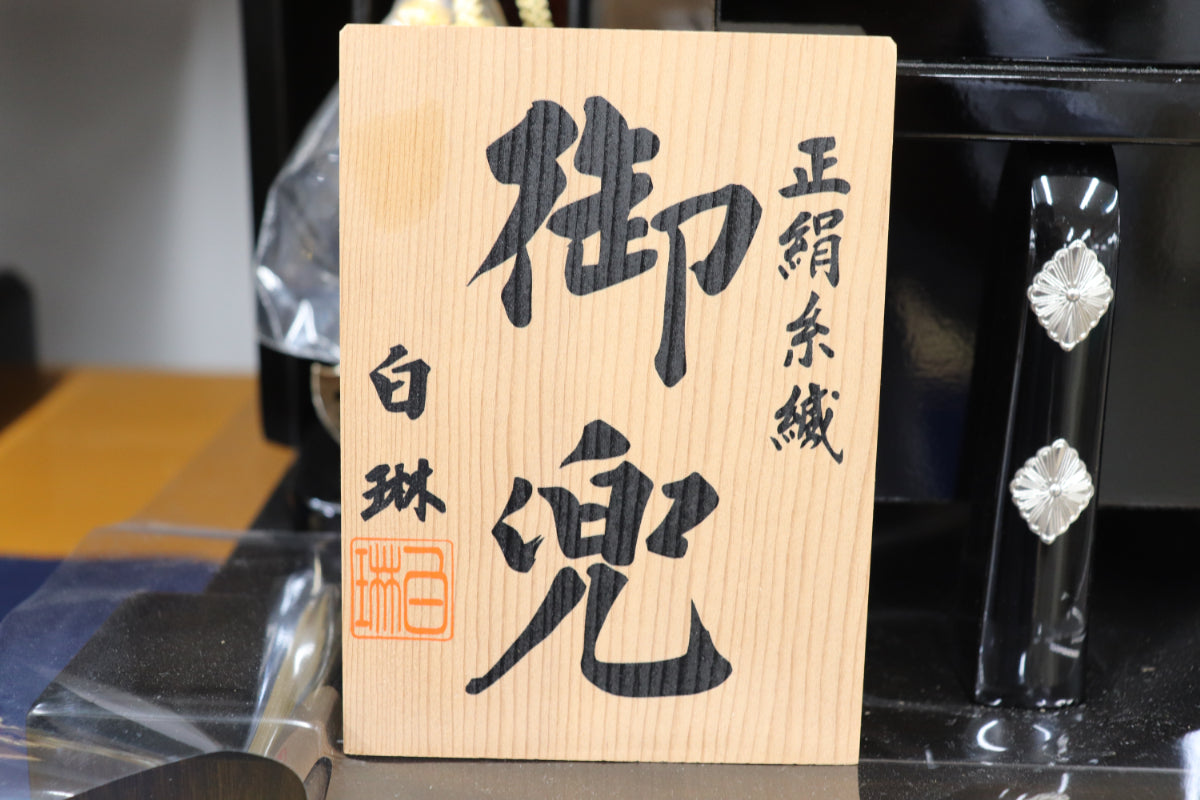 正絹糸縅
御兜
白琳
白琳